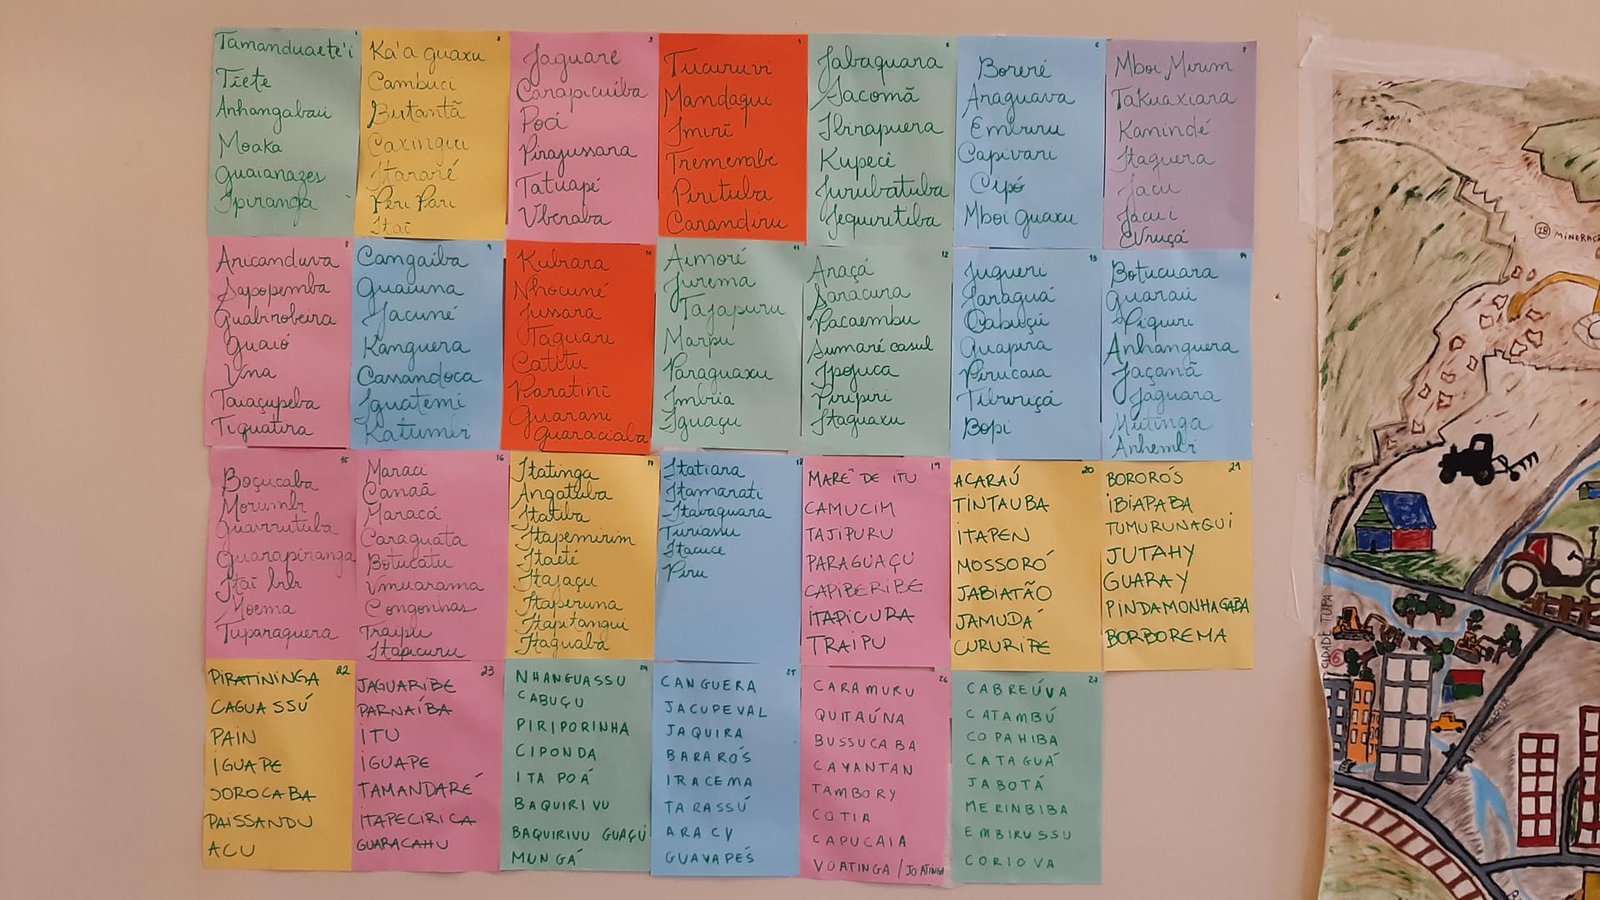 1
Tamanduaete'i
Tiete
Anhangabau
Moaka
Guaianazes
Ipiranga
2
Ka'a guaxu
Cambuci
Butantã
Caxingui
Itararé
Peri Pari
Itai
3
Jaguare
Carapicuiba
Poci
Pirajussara
Tatuapé
Uberaba
4
Tucuruvi
Mandaqui
Imiri
Tremembe
Pirituba
Carandiru
5
Jabaquara
Sacomã
Ibirapuera
Kupeci
Jurubatuba
Jequiritiba
6
Bororé
Araguava
Emburu
Capivari
Cipó
Mboi Guaxu
7
Mboi Mirim
Takuaxiara
Kanindé
Itaquera
Jacu
Jacui
Uruçá
8
Aricanduva
Sapopemba
Guabirobeira
Guaió
Una
Taiaçupeba
Tiquatira
9
Cangaiba
Guaiuna
Jacuné
Kanguera
Cassandoca
Iguatemi
Katumbi
10
Kubiara
Nhocuné
Jussara
Taguari
Catitu
Paratini
Guarani
Guaraciaba
11
Aimoré
Jurema
Tajapuru
Marpu
Paraguaxu
Imbria
Iguaçu
12
Araçá
Saracura
Pacaembu
Sumaré casul
Ipojuca
Piripiri
Itaguaxu
13
Juqueri
Jaraguá
Cabuçú
Guapira
Pirucaia
Tiburuçá
Bopi
14
Botucuara
Guaraú
Piquiri
Anhanguera
Jaçanã
Jaguara
Mutinga
Anhembi
15
Boçucaba
Morumbi
Guavirutuba
Guarapiranga
Itai bibi
Moema
Tuparaquera
16
Maraci
Canaã
Maracá
Caraguata
Botucatu
Umuarama
Congonhas
Traipu
Itapicuru
17
Itatinga
Angatuba
Itatiba
Itapemirim
Itaeté
Itajaçu
Itaperuna
Itapitangui
Itaguaba
18
Itatiara
Itamarati
Itabaquara
Turiassu
Itacuce
Piru
19
MARE DE ITU
CAMUCIM
TAJIPURU
PARAGUAÇU
CAPIBERIBE
ITAPICURA
TRAIPU
20
ACARAÚ
TINTAUBA
ITAPEN
MOSSORÓ
JABIATÃO
JAMUDÁ
CURURIPE
21
BORORÓS
IBIAPABA
TUMURUNAQUI
JUTAHY
GUARAY
PINDAMONHAGABA
BORBOREMA
22
PIRATININGA
CAGUASSÚ
PAIN
IGUAPE
SOROCABA
PAISSANDU
ACU
23
JAGUARIBE
PARNAÍBA
ITU
IGUAPE
TAMANDARÉ
ITAPECIRICA
GUARACAHU
24
NHANGUASSU
CABUÇU
PIRIPORINHA
CIPONDA
ITA POÁ
BAQUIRIVU
BAQUIRIVU GUAÇU
MUNGÁ
25
CANGUERA
JACUPEVAL
JAQUIRA
BARARÓS
IRACEMA
TARASSÚ
ARACY
GUAYAPÉS
26
CARAMURU
QUITAÚNA
BUSSUCABA
CAYANTAN
TAMBORY
COTIA
CAPUCAIA
VOATINGA / JOATINGA
27
CABREÚVA
CATAMBÚ
COPAHIBA
CATAGUÁ
JABOTÁ
MERINBIBA
EMBIRUSSU
CORIOVA
18 MINERAC
CIDADE TUPÃ
6